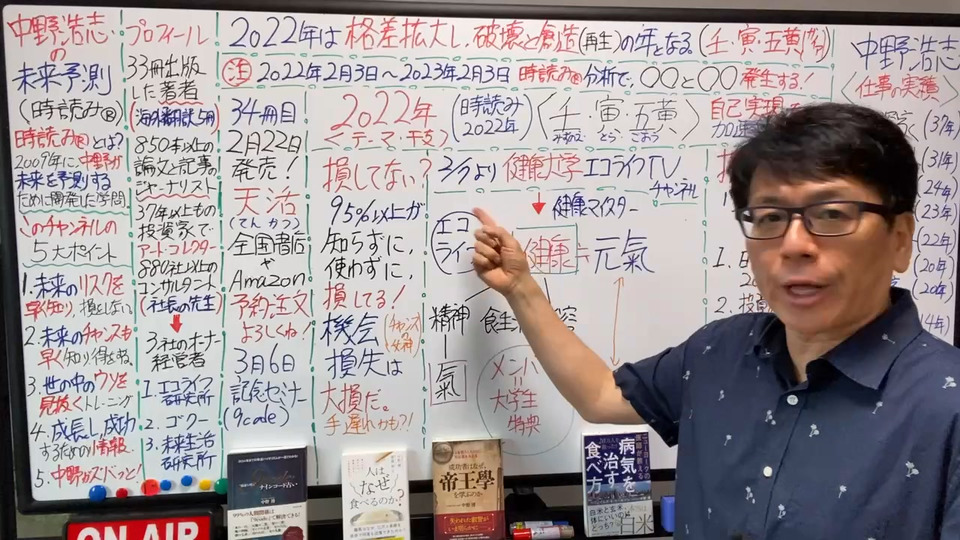 中野浩志
の
未来予測
(時読み®)
時読み®とは?
2007年に、中野が
未来を予測する
ために開発した学問
このチャンネルの
5大ポイント
1.未来のリスクを
早く知り、損としない。
2.未来のチャンスも
早く知り得をする。
3.世の中のウソを
見抜くトレーニング
4.成長し成功
するための情報
5.中野がズバッと!
プロフィール
33冊出版
した著者
(海外翻訳5冊)
850本以上の
論文と記事の
ジャーナリスト
37年以上もの
投資家で
アートコレクター
880社以上の
コンサルタント
(社長の先生)
3社のオーナー
経営者
1.エコライフ
研究所
2.ゴクー
3.未来生活
研究所
2022年は格差拡大し、破壊と創造(再生)の年となる(壬・寅・五黄)
注 2022年2月3日~2023年2月3日 時読み®分析で、〇〇と〇〇発生する!
34冊目
2月22日
発売!
天活
(てんかつ)
全国書店
や
Amazon
予約注文
よろしくね!
3月6日
記念セミナー
(9code)
2022年
<テーマ・干支>
時読み
2022年
<壬・寅・五黄>
みずのえ とら ごおう
損してない?
95%以上が
知らずに、
使わずに、
損してる!
機会
損失は
大損だ。
手遅れかも?!
より 健康大学 エコライフTV
チャンネル
健康マイスター
エコ
ライ
健康=元氣
精神
食生
氣
メンバー
=
大学生
特典
自己実現
中野浩志
<仕事の実績>
(37年)
(31年)
24年)
23年)
(22年)
(20年)
(20年)
14年)
1.
2.
ナインコード占い
人は
なぜ
食べるのか?
成功者はなぜ、
帝王學
を学ぶのか
病気を
治す
食べ方
白米と玄米
体にいいのは
どっち?
白米
ON AIR